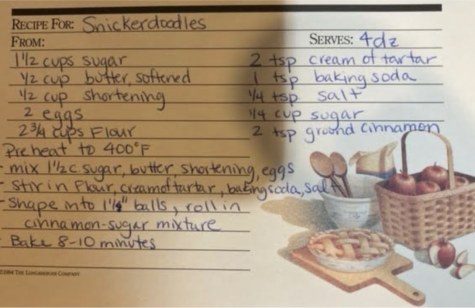 RECIPE FOR: Snickerdoodles
FROM: SERVES: 4dz
1 1/2 cups sugar
1/2 cup butter, softened
1/2 cup shortening
2 eggs
2 3/4 cups Flour
2 tsp cream of tartar
1 tsp baking soda
1/4 tsp salt
1/4 cup sugar
2 tsp ground cinnamon
Preheat to 400°F
- mix 1 1/2 c. sugar, butter shortening, eggs
- Stir in Flour, cream of tartar, baking soda, salt
- Shape into 1 1/4" balls, roll in
cinnamon-sugar mixture
- Bake 8-10 minutes
THE LONGABERGER COMPANY